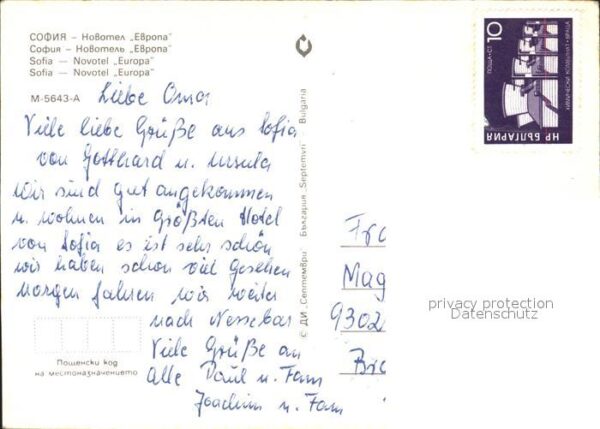 СОФИЯ — Новотел „Европа"
София — Новотель „Европа"
Sofia — Novotel „Europa"
Sofia — Novotel „Europa"
М-5643-А
Liebe Oma
Viele liebe Grüße aus Sofia
von Gotthard u. Ursula
Wir sind gut angekommen
u. wohnen in Größten Hotel
von Sofia es ist sehr schön
wir haben schon viel gesehen
Morgen fahren wir weiter
nach Nessebar
Viele Grüße an
Alle Paul u. Fam
Joachim u. Fam
Пощенски код
на местоназначението
© ДИ „Септември" България „Septemvri" Bulgaria
ПОЩА·СТ. 10
ХИМИЧЕСКИ КОМБИНАТ - ВРАЦА
НР БЪЛГАРИЯ
Frc
Mag
9302
Brc
privacy protection
Datenschutz